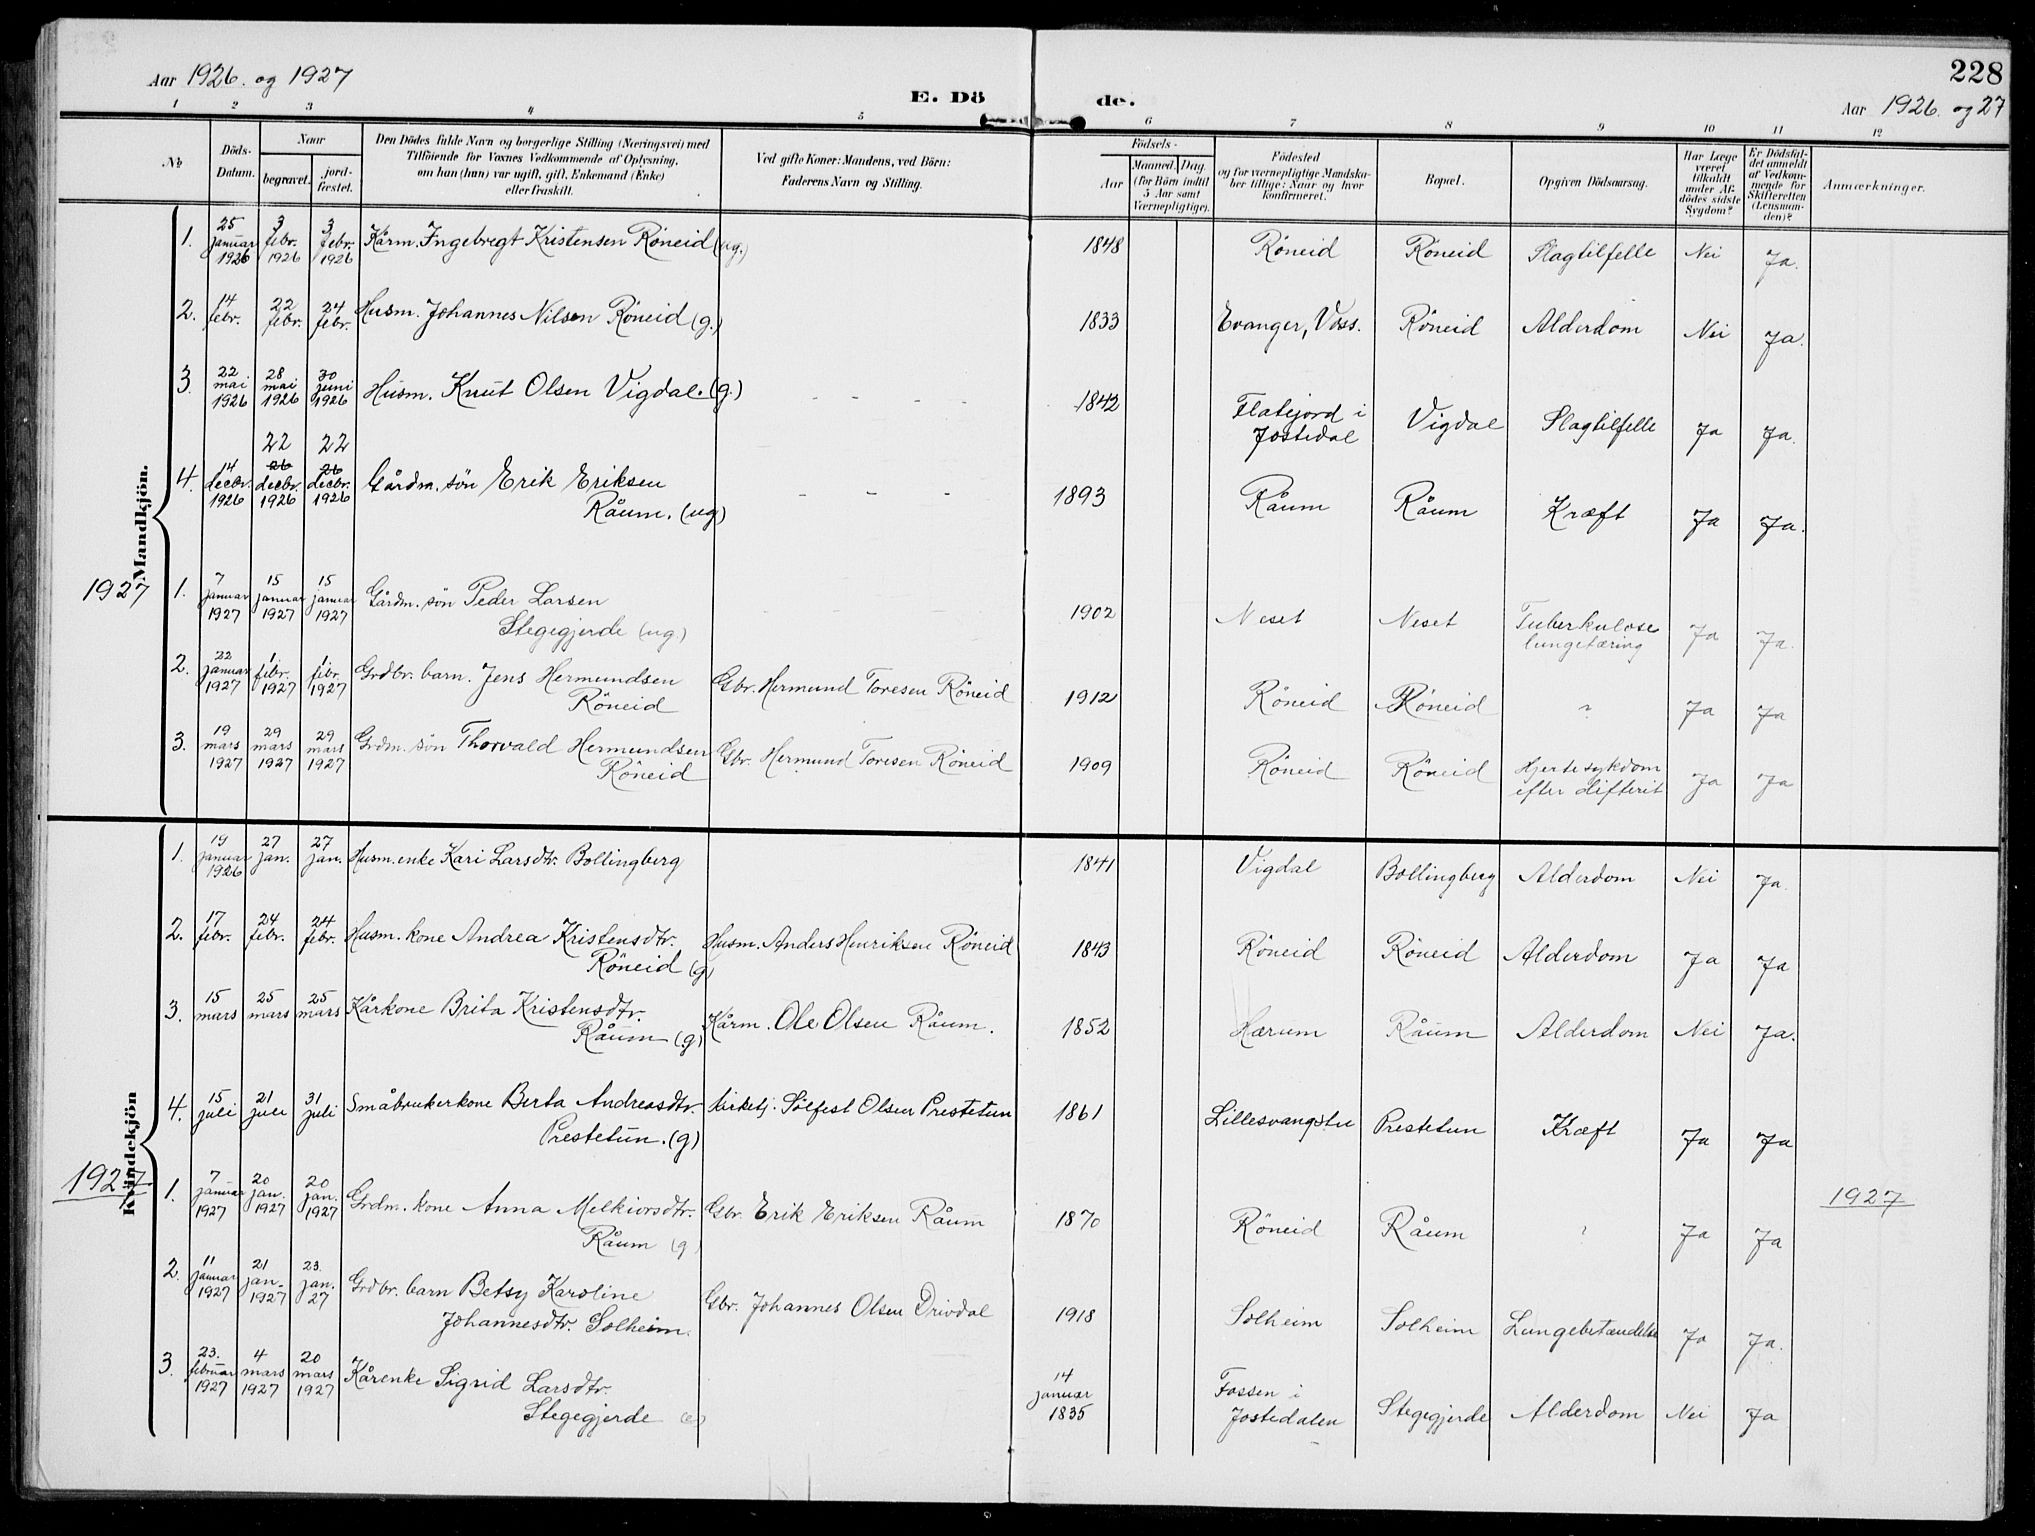 Aar 1926. og 1927
E. Döde.
228
Aar 1926. og 27
1 2 3 4 5 6 7 8 9 10 11 12
No
Döds-Datum.
Naar
begravet.
jord-fæstet.
Den Dödes fulde Navn og borgerlige Stilling (Næringsvei) med
Tilföiende for Voxnes Vedkommende af Oplysning,
om han (hun) var ugift, gift, Enkemand (Enke)
eller fraskilt.
Ved gifte Koner: Mandens, ved Börn:
Faderens Navn og Stilling.
Födsels-
Aar
Maaned. Dag.
(for Börn indtil
5 Aar samt
Værnepligtige).
Födested
og for værnepligtige Mandska-
ber tillige: Naar og hvor
konfirmeret.
Bopæl.
Opgiven Dödsaarsag.
Har Læge
været
tilkaldt
under Af-
dödes sidste
Sygdom?
Er Dödsfal-
det anmeldt
af Vedkom-
mende for
Skifteretten
(Lensman-
den)?
Anmærkninger.
Mandkjön.
1. 25 januar 1926 3 febr. 1926 3 febr. 1926 Kårm. Ingebregt Kristensen Röneid (ug.) 1848 Röneid Röneid Slagtilfelle Nei Ja.
2. 14 febr. 22 febr. 24 febr. Husm. Johannes Nilsen Röneid (g.) 1833 Evanger, Voss. Röneid Alderdom Nei Ja.
3 22 mai 1926 28 mai 1926 30 juni 1926 Husm. Knut Olsen Vigdal. (g.) - - - - 1842 Flatejord i Jostedal Vigdal Slagtilfelle Ja Ja.
4. 14 decbr. 1926 22 26 decbr. 1926 22 26 decbr. 1926 Gårdm. sön Erik Eriksen Råum. (ug) - - - 1893 Råum Råum Kræft Ja Ja.
1927
1. 7 januar 1927 15 januar 1927 15 januar 1927 Gårdm. sön Peder Larsen Stegegjerde (ug.) 1902 Neset Neset Tuberkulose lungetæring Ja Ja.
2. 22 januar 1927 1 febr. 1927 1 febr. 1927 Grdbr. barn. Jens Hermundsen Röneid Gbr. Hermund Toresen Röneid 1912 Röneid Röneid ? Ja Ja
3. 19 mars 1927 29 mars 1927 29 mars 1927 Grdm. sön Thorvald Hermundsen Röneid Gbr. Hermund Toresen Röneid 1909 Röneid Röneid Hjertesykdom efter difterit Ja Ja
Kvindekjön
1. 19 januar 1926 27 jan. 27 jan. Husm. enke Kari Larsdtr. Bollingberg 1841 Vigdal Bollingberg Alderdom Nei Ja.
2. 17 febr. 24 febr. 24 febr. Husm. kone Andrea Kristensdtr. Röneid (g) Husm. Anders Henriksen Röneid 1843 Röneid Röneid Alderdom Ja Ja
3. 15 mars 25 mars 25 mars Kårkone Brita Kristensdtr. Råum (g) Kårm. Ole Olsen Råum. 1852 Hærum Råum Alderdom Nei Ja.
4. 15 juli 21 juli 31 juli Småbrukerkone Berta Andreasdtr. Prestetun. (g) Kirketj. Sölfest Olsen Prestetun 1861 Prestetun Kræft Ja Ja
1927
1927
1. 7 januar 1927 20 jan. 1927 20 jan. 1927 Grdm. kone Anna Melkiorsdtr. Råum (g) Gbr. Erik Eriksen Råum 1870 Röneid Råum ? Ja Ja
2. 11 januar 1927 21 jan. 1927 23. jan. 27 Grdbr. barn Betsy Karoline Johannesdtr. Solheim. Gbr. Johannes Olsen Drivdal 1918 Solheim Solheim Lungebetændelse Ja Ja.
3. 23. februar 1927 4 mars 1927 20 mars 1927 Kårenke Sigrid Larsdtr. Stegegjerde (e) 14 januar 1835 Fossen i Jostedalen Stegegjerde Alderdom Nei Ja